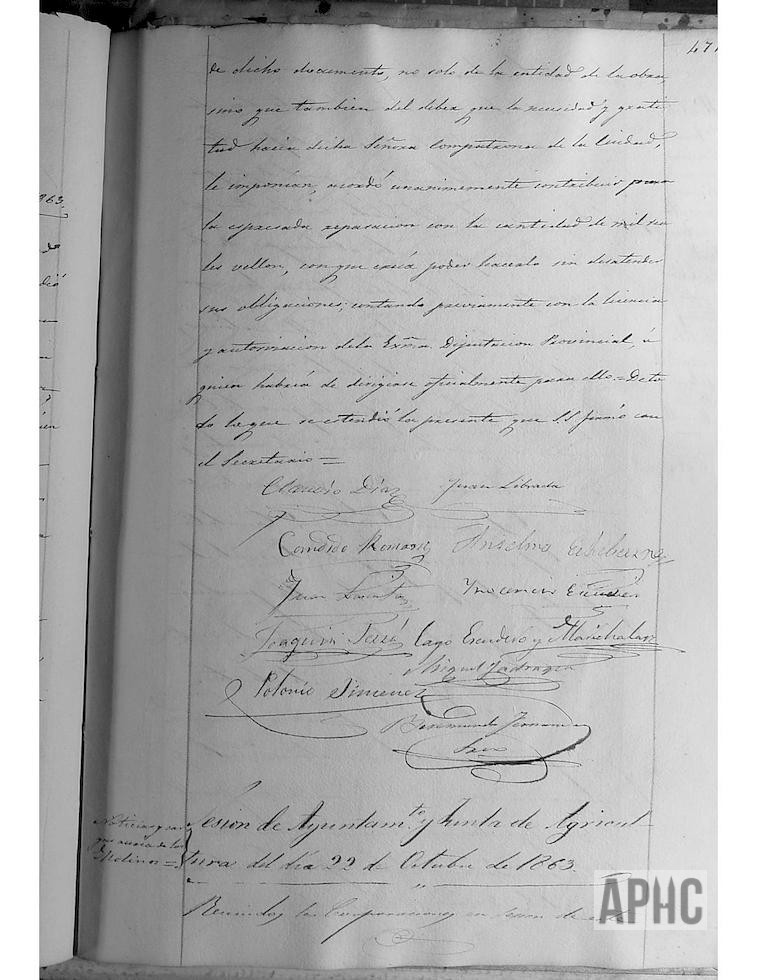 471
de dicho documento, no solo de la entidad de la obra,
sino que tambien del deber que la necesidad y grati
tud hacia dicha Señora Compatrona de la Ciudad,
le imponian, acordó unanimemente contribuir para
la espresada reparacion con la cantidad de mil rea
les vellon, con que creía poder hacerlo sin desatender
sus obligaciones; contando previamente con la licencia
y autorizacion de la Exma. Diputacion Provincial, á
quien habria de dirigirse oficialmente para ello.=De to
do lo que se estendió la presente que S.S. firmó con
el Secretario =
Claudio Diaz Juan Librada
Candido Roman Anselmo
Juan Inocencio
Joaquin Cayo Escudero y Marichalar
Miguel
Polonio Jimenez
Bermundo Fernandez
Saez
Noticias
Molinos =
Sesion de Ayuntamto. y Junta de Agricul-
tura del dia 22 de Octubre de 1863.
Reunidas las Corporaciones en sesion de este
963.
APHC